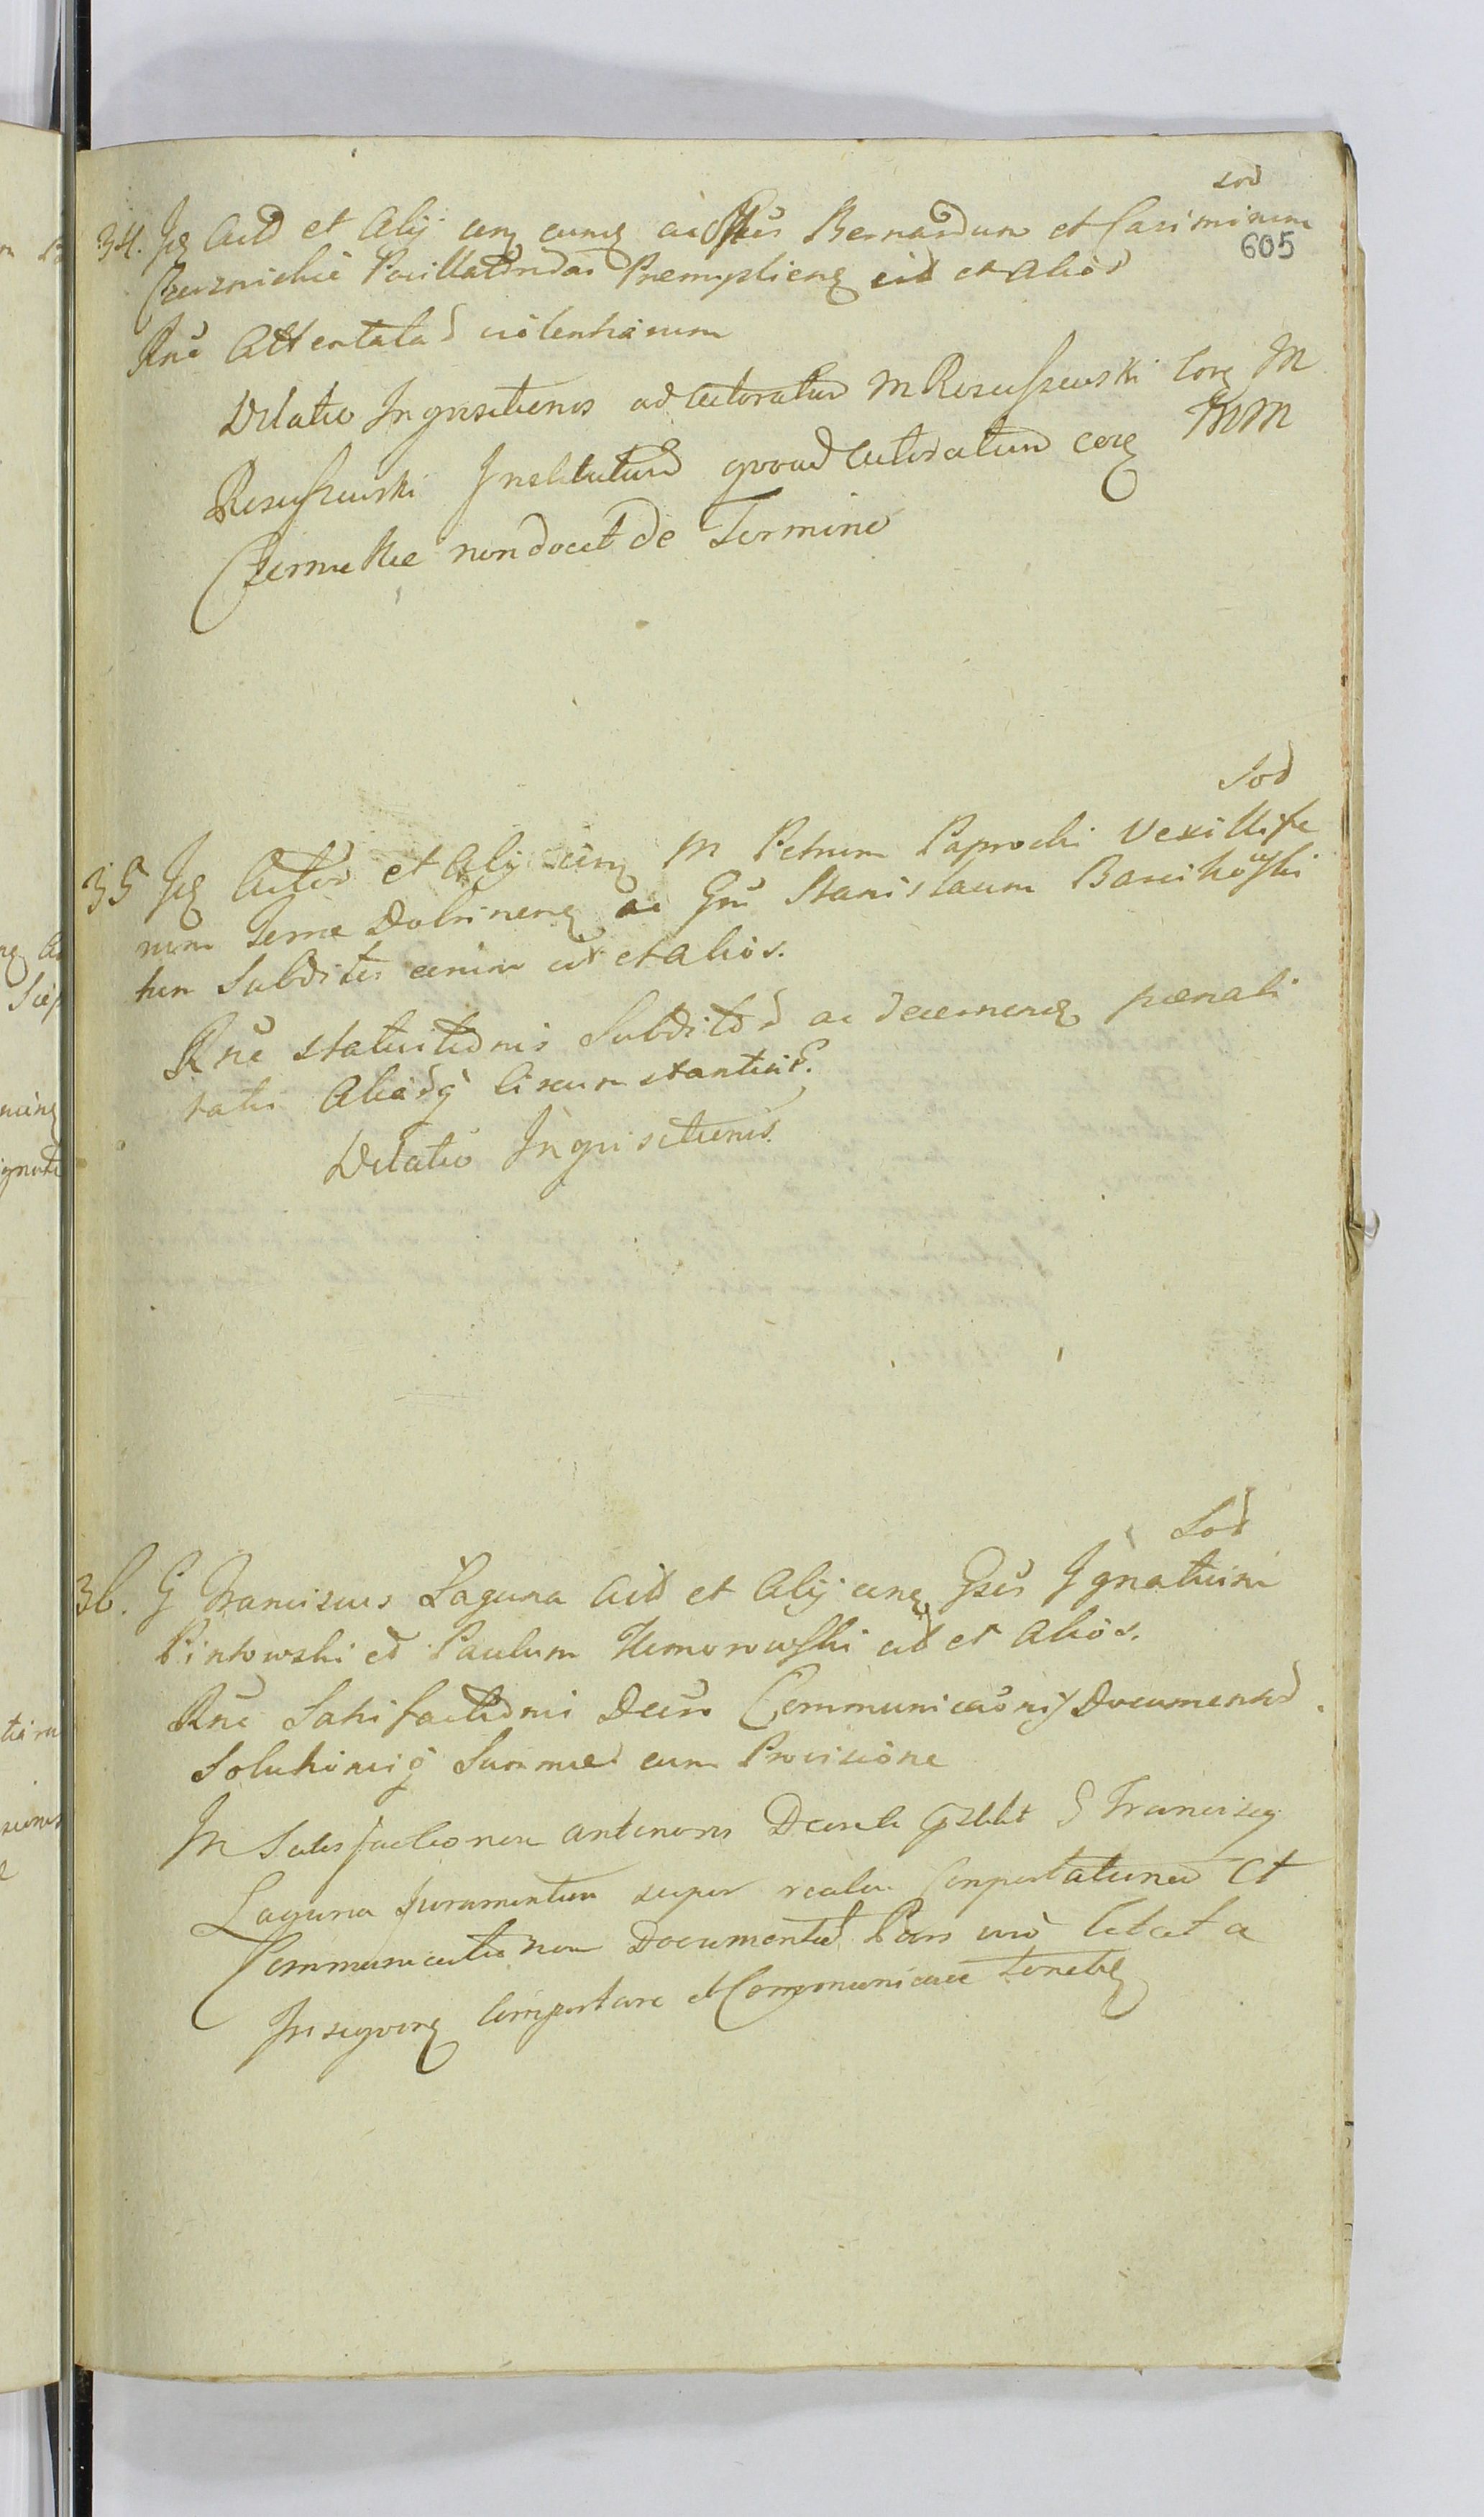 Sod
605
34. Jq Actõ et Alij cenq eunq ac Gsũs Bernardum et Casimirum
Czerznickie Pocillatoridas Premyslienq cit et aliõs
Rnẽ Attentatõr violentiarum
Dilatio Inqvisitionis ad Actoratum M Roscißewski Corq M
Roscißewski Institutum qvoad Actoratum corq MM
Czernickie non docet de Termino
Sod
35 Jq Actõr et Alij cenq M Petrum Paprocki Vexillife
rum Terræ Dobrinenq ac Gnũ Stanislaum Barcikoski
tum Subditos eorum cit et aliõs.
Rnẽ statuitiõnis Subditõr ac decernenq pœnali
tatis Aliarq circumstantiar.
Dilatio Inqvisitionis.
Sod
36. G Franciscus Łaguna Actõ et Alij cenq Gsũs Ignatium
Pintowski et Paulum Humorowski cit et aliõs.
Rnẽ Satisfactiõnis Decrõ Communicaõnis Documentor
Solutionisq Summæ cum Provisione
In Satisfactionem anterioris Decreti pstitit G Franciscq
Łaguna Juramentum super realem Comportationem Et
Communicationem Documentor Pars verò Citata
In seqvenq Comportare et Communicare tenebq